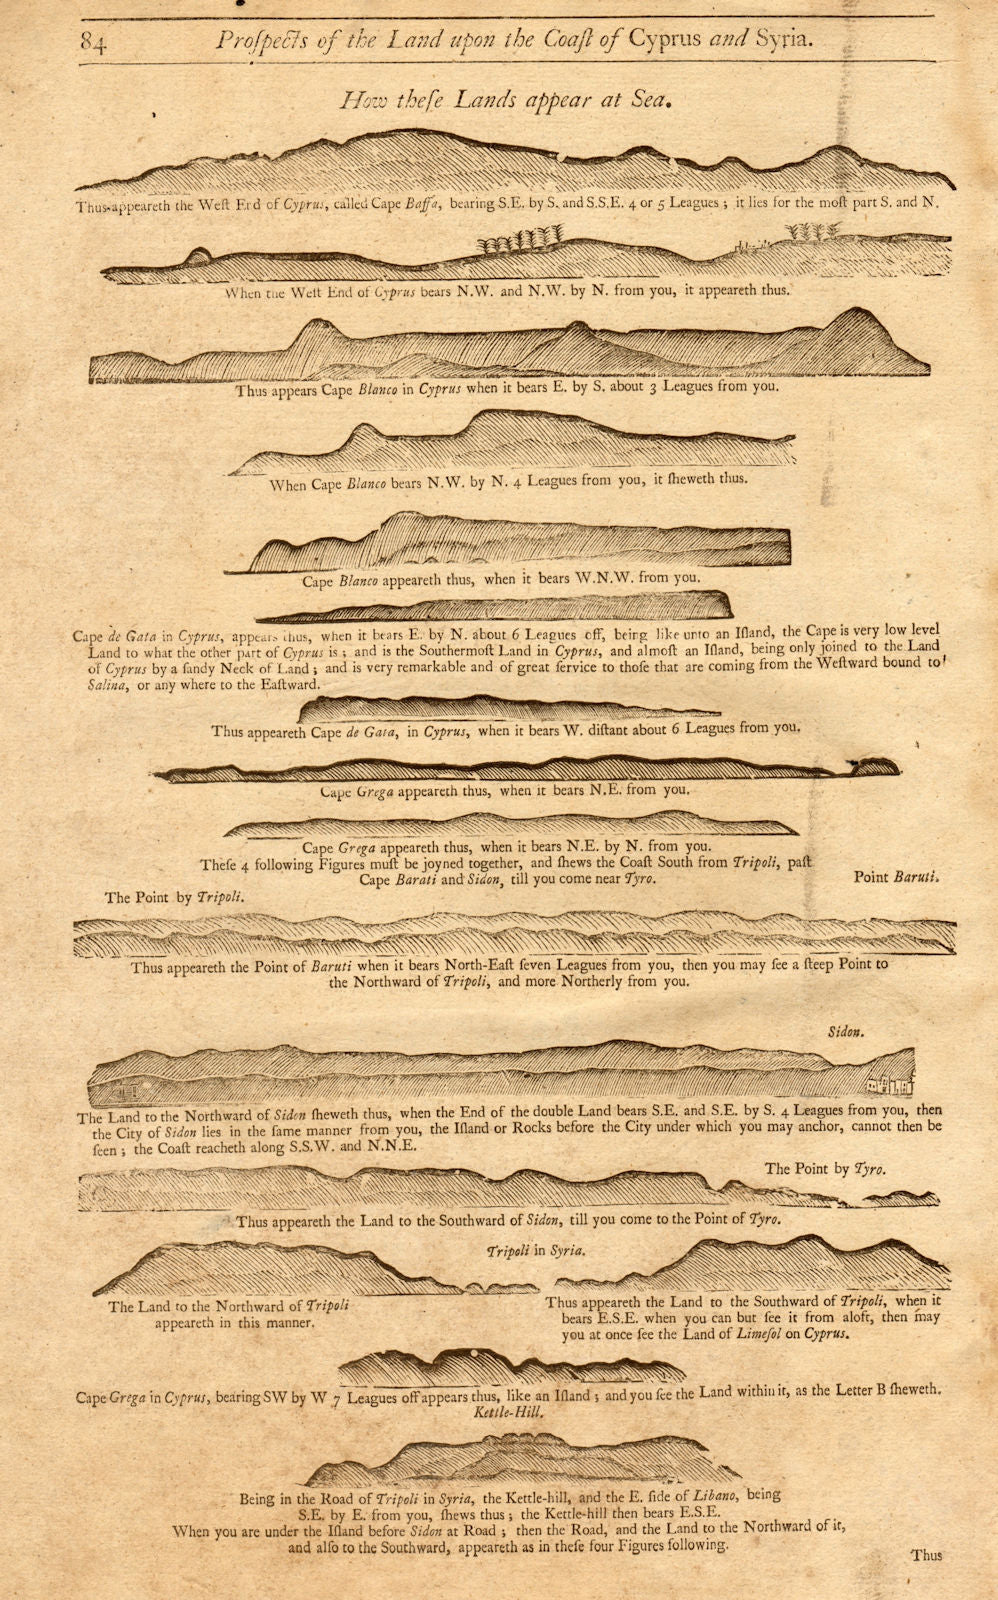 84 Proſpects of the Land upon the Coaſt of Cyprus and Syria.
How theſe Lands appear at Sea.
Thus appeareth the Weſt End of Cyprus, called Cape Baffa, bearing S.E. by S. and S.S.E. 4 or 5 Leagues ; it lies for the moſt part S. and N.
When the Weſt End of Cyprus bears N.W. and N.W. by N. from you, it appeareth thus.
Thus appears Cape Blanco in Cyprus when it bears E. by S. about 3 Leagues from you.
When Cape Blanco bears N.W. by N. 4 Leagues from you, it ſheweth thus.
Cape Blanco appeareth thus, when it bears W.N.W. from you.
Cape de Gata in Cyprus, appears thus, when it bears E. by N. about 6 Leagues off, being like unto an Iſland, the Cape is very low level
Land to what the other part of Cyprus is ; and is the Southermoſt Land in Cyprus, and almoſt an Iſland, being only joined to the Land
of Cyprus by a ſandy Neck of Land ; and is very remarkable and of great ſervice to thoſe that are coming from the Weſtward bound to
Salina, or any where to the Eaſtward.
Thus appeareth Cape de Gata, in Cyprus, when it bears W. diſtant about 6 Leagues from you.
Cape Grega appeareth thus, when it bears N.E. from you.
Cape Grega appeareth thus, when it bears N.E. by N. from you.
Theſe 4 following Figures muſt be joyned together, and ſhews the Coaſt South from Tripoli, paſt
Cape Barati and Sidon, till you come near Tyro.
Point Baruti.
The Point by Tripoli.
Thus appeareth the Point of Baruti when it bears North-Eaſt ſeven Leagues from you, then you may ſee a ſteep Point to
the Northward of Tripoli, and more Northerly from you.
Sidon.
The Land to the Northward of Sidon ſheweth thus, when the End of the double Land bears S.E. and S.E. by S. 4 Leagues from you, then
the City of Sidon lies in the ſame manner from you, the Iſland or Rocks before the City under which you may anchor, cannot then be
ſeen ; the Coaſt reacheth along S.S.W. and N.N.E.
The Point by Tyro.
Thus appeareth the Land to the Southward of Sidon, till you come to the Point of Tyro.
Tripoli in Syria.
The Land to the Northward of Tripoli
appeareth in this manner.
Thus appeareth the Land to the Southward of Tripoli, when it
bears E.S.E. when you can but ſee it from aloft, then may
you at once ſee the Land of Limeſol on Cyprus.
Cape Grega in Cyprus, bearing SW by W 7 Leagues off appears thus, like an Iſland ; and you ſee the Land within it, as the Letter B ſheweth.
Kettle-Hill.
Being in the Road of Tripoli in Syria, the Kettle-hill, and the E. ſide of Libano, being
S.E. by E. from you, ſhews thus ; the Kettle-hill then bears E.S.E.
When you are under the Iſland before Sidon at Road ; then the Road, and the Land to the Northward of it,
and alſo to the Southward, appeareth as in theſe four Figures following.
Thus